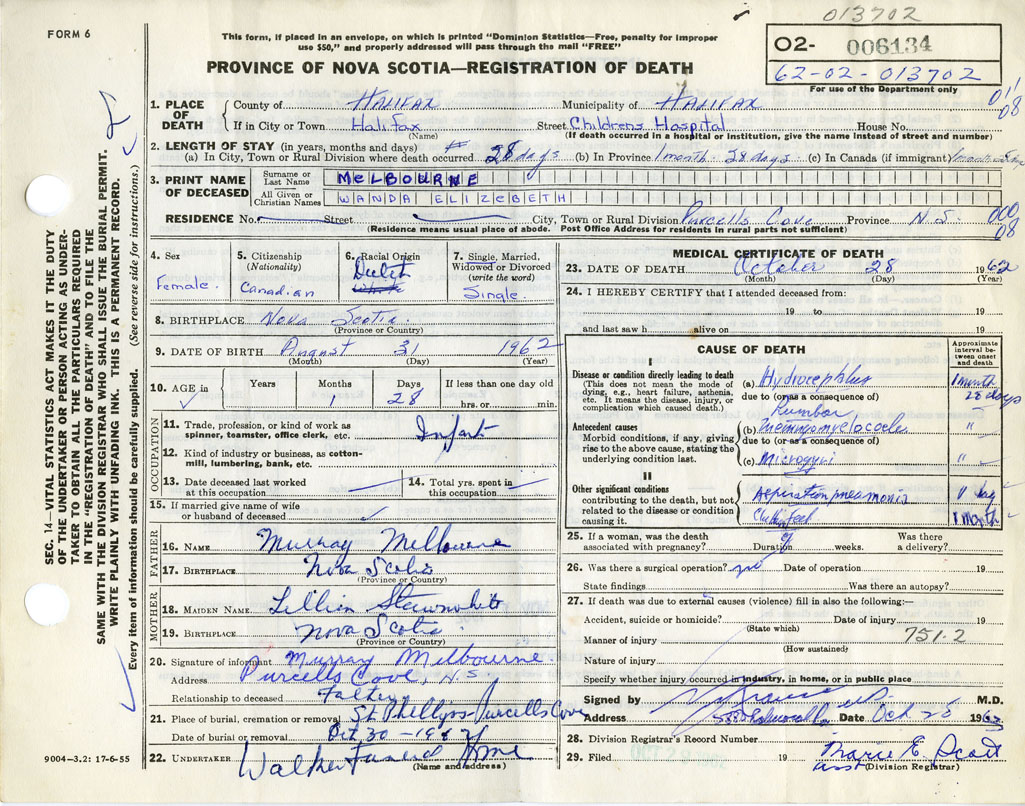 013702
FORM 6
This form, if placed in an envelope, on which is printed "Dominion Statistics—Free, penalty for improper
use $50," and properly addressed will pass through the mail "FREE"
PROVINCE OF NOVA SCOTIA—REGISTRATION OF DEATH
02- 006134
62-02-013702
For use of the Department only
1. PLACE OF DEATH
County of Halifax Municipality of Halifax
If in City or Town Halifax Street Childrens Hospital House No.
(Name) (If death occurred in a hospital or institution, give the name instead of street and number)
2. LENGTH OF STAY (in years, months and days)
(a) In City, Town or Rural Division where death occurred 28 days (b) In Province 1 month 28 days (c) In Canada (if immigrant)
3. PRINT NAME OF DECEASED
Surname or Last Name MELBOURNE
All Given or Christian Names WANDA ELIZEBETH
RESIDENCE No. Street City, Town or Rural Division Purcells Cove Province N.S.
(Residence means usual place of abode. Post Office Address for residents in rural parts not sufficient)
000
08
4. Sex
Female.
5. Citizenship
(Nationality)
Canadian
6. Racial Origin
Dutch
7. Single, Married,
Widowed or Divorced
(write the word)
Single.
8. BIRTHPLACE Nova Scotia.
(Province or Country)
9. DATE OF BIRTH August 31 1962
(Month) (Day) (Year)
10. AGE in
Years Months Days If less than one day old
1 28 hrs. or min.
OCCUPATION
11. Trade, profession, or kind of work as
spinner, teamster, office clerk, etc. Infant
12. Kind of industry or business, as cotton-
mill, lumbering, bank, etc.
13. Date deceased last worked
at this occupation
14. Total yrs. spent in
this occupation
15. If married give name of wife
or husband of deceased
FATHER
16. NAME Murray Melbourne
17. BIRTHPLACE Nova Scotia
(Province or Country)
MOTHER
18. MAIDEN NAME Lillian
19. BIRTHPLACE Nova Scotia
(Province or Country)
20. Signature of informant Murray Melbourne.
Address Purcells Cove, N.S.
Relationship to deceased Father
21. Place of burial, cremation or removal St Phillips-Purcells Cove
Date of burial or removal Oct 30 - 1962
22. UNDERTAKER Walker Funeral Home
(Name and address)
MEDICAL CERTIFICATE OF DEATH
23. DATE OF DEATH October 28 1962
(Month) (Day) (Year)
24. I HEREBY CERTIFY that I attended deceased from:
19 to 19
and last saw h alive on 19
CAUSE OF DEATH
Approximate
interval be-
tween onset
and death
I
Disease or condition directly leading to death
(This does not mean the mode of
dying, e.g., heart failure, asthenia,
etc. It means the disease, injury, or
complication which caused death.)
(a) Hydrocephalus 1 month 28 days
due to (or as a consequence of)
Antecedent causes
Morbid conditions, if any, giving
rise to the above cause, stating the
underlying condition last.
Lumbar
(b) meningomyelocoele "
due to (or as a consequence of)
(c) Microgyri "
II
Other significant conditions
contributing to the death, but not
related to the disease or condition
causing it.
Aspiration pneumonia 1 day
Club feet 1 month
25. If a woman, was the death
associated with pregnancy? Duration weeks. Was there
a delivery?
26. Was there a surgical operation? no Date of operation 19
State findings Was there an autopsy?
27. If death was due to external causes (violence) fill in also the following:—
Accident, suicide or homicide? Date of injury 19
(State which)
Manner of injury 751.2
(How sustained)
Nature of injury
Specify whether injury occurred in industry, in home, or in public place
Signed by M.D.
Address Date Oct 28 1962
28. Division Registrar's Record Number
29. Filed 19 Marie E. Scott
Asst (Division Registrar)
9004—3.2: 17-6-55
SEC. 14—VITAL STATISTICS ACT MAKES IT THE DUTY
OF THE UNDERTAKER OR PERSON ACTING AS UNDER-
TAKER TO OBTAIN ALL THE PARTICULARS REQUIRED
IN THE "REGISTRATION OF DEATH" AND TO FILE THE
SAME WITH THE DIVISION REGISTRAR WHO SHALL ISSUE THE BURIAL PERMIT.
WRITE PLAINLY WITH UNFADING INK. THIS IS A PERMANENT RECORD.
Every item of information should be carefully supplied. (See reverse side for instructions.)